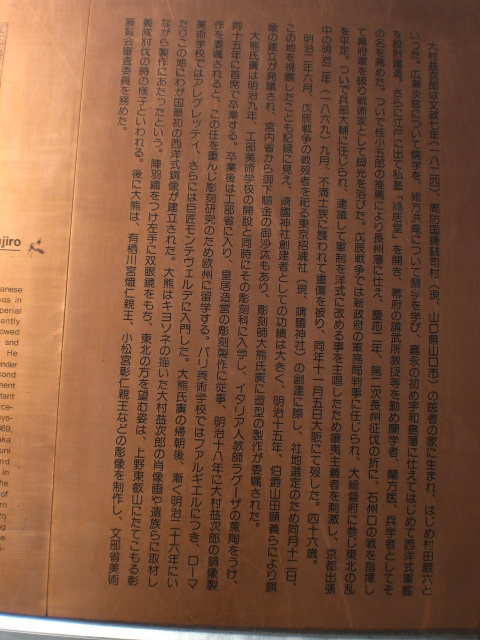 大村益次郎は文政七年(一八二四)、周防国鋳銭司村(現、山口県山口市)の医者の家に生まれ、はじめ村田蔵六と
いった。広瀬淡窓について儒学を、緒方洪庵について蘭学を学び、嘉永の初め宇和島藩に仕えてはじめて西洋式軍艦
を設計建造、さらに江戸に出て私塾「鳩居堂」を開き、幕府の講武所教授等を勤め蘭学者、蘭方医、兵学者としてそ
の名を高めた。ついで桂小五郎の推薦により長州藩に仕え、慶応二年、第二次長州征伐の折に、石州口の戦を指揮し
て幕府軍を破り戦術家として脚光を浴びた。戊辰戦争では維新政府の軍務局判事に任じられ、大総督府に参じ東北の乱
を平定。ついで兵部大輔に任じられ、建議して軍制を洋式に改める事を主唱したため攘夷主義者を刺激し、京都出張
中の明治二年(一八六九)九月、不満士族に襲われて重傷を被り、同年十一月五日大阪にて歿した。四十六歳。
明治二年六月、戊辰戦争の戦歿者を祀る東京招魂社(現、靖國神社)の創建に際し、社地選定のため同月十二日、
この地を視察したことも記録に見え、靖國神社創建者としての功績は大きく、明治十五年、伯爵山田顕義らにより銅
像の建立が発議され、宮内省から御下賜金の御沙汰もあり、彫刻師大熊氏廣に造型の製作が委嘱された。
大熊氏廣は明治九年、工部美術学校の開設と同時にその彫刻科に入学し、イタリア人教師ラグーザの薫陶をうけ、
同十五年に首席で卒業する。卒業後は工部省に入り、皇居造営の彫刻製作に従事、明治十八年に大村益次郎の銅像製
作を委嘱されると、この任を重んじ彫刻研究のため欧州に留学する。パリ美術学校ではファルギエルにつき、ローマ
美術学校ではアレグレッティ、さらには巨匠モンテヴェルデに入門した。大熊氏廣の帰朝後、漸く明治二十六年にい
たりこの地にわが国最初の西洋式銅像が建立された。大熊はキヨソネの描いた大村益次郎の肖像画や遺族らに取材し
ながら製作にあたったという。陣羽織をつけ左手に双眼鏡をもち、東北の方を望む姿は、上野東叡山にたてこもる彰
義隊討伐の時の様子といわれる。後に大熊は、有栖川宮熾仁親王、小松宮彰仁親王などの彫像を制作し、文部省美術
展覧会審査委員を務めた。